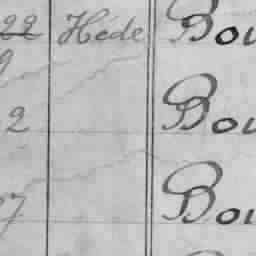 22 Hédé Bou
9
2 Bou
7 Bou